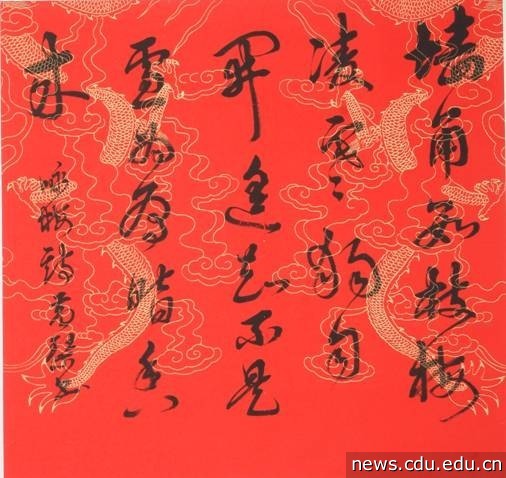 墙角数枝梅
凌寒独自
开遥知不是
雪为有暗香
来
咏梅诗
news.cdu.edu.cn